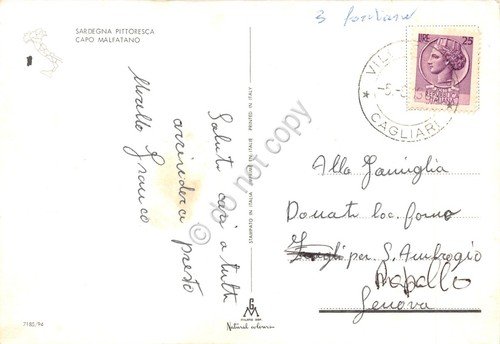 SARDEGNA PITTORESCA
CAPO MALFATANO
3 fontane
LIRE 25
VIL
-5.
CAGLIARI
Saluti cari a tutti
arrivederci presto
Mirello Franco
STAMPATO IN ITALIA IMPRIMÉ EN ITALIE PRINTED IN ITALY
do not copy
Alla Famiglia
Donati loc. forno
per S. Ambrogio
Rapallo
Genova
7185/94
Natural colour